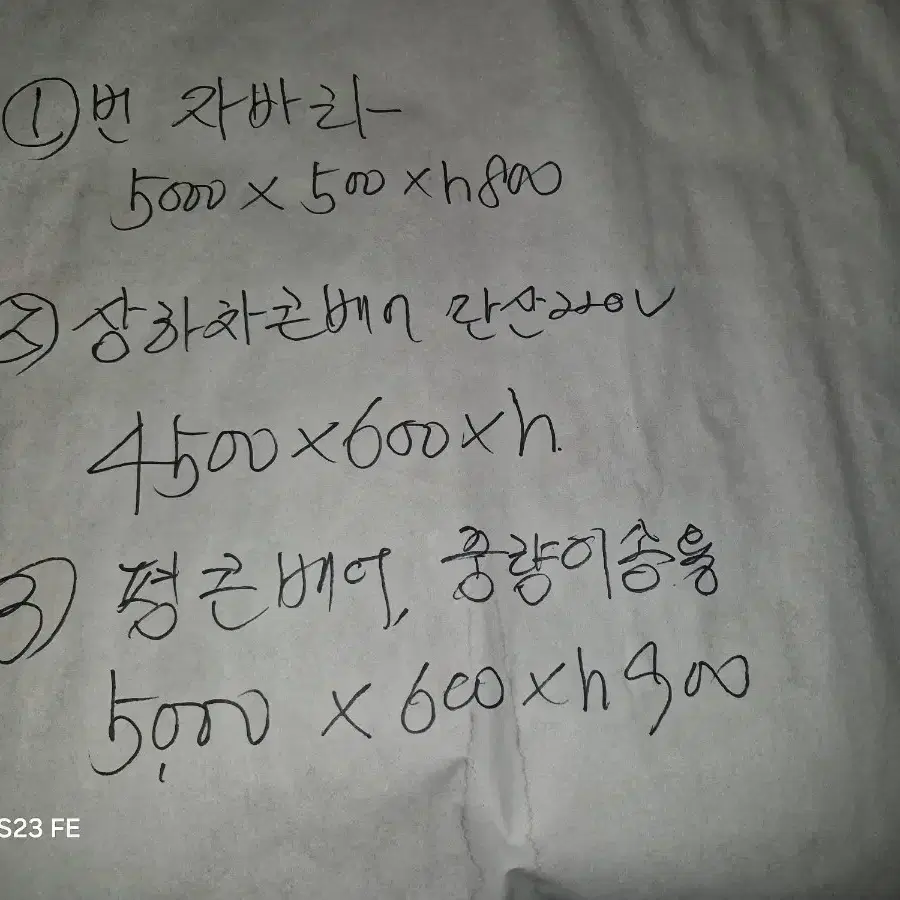 ①번 자바라
5000 x 500 x h800
② 상하차콘베어 단상220V
4500x600xh
③ 평콘베어, 중량이송용
5,000 x 600 x h900
S23 FE